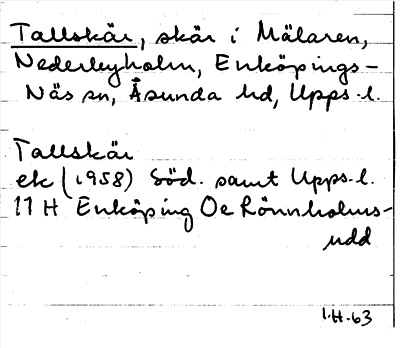 Tallskär, skär i Mälaren,
Nederbyholm, Enköpings-
Näs sn, Åsunda hd, Upps.l.
Tallskär
ek (1958) Söd. samt Upps.l.
11 H Enköping Oe Rönnholms-
udd
I.H.-63